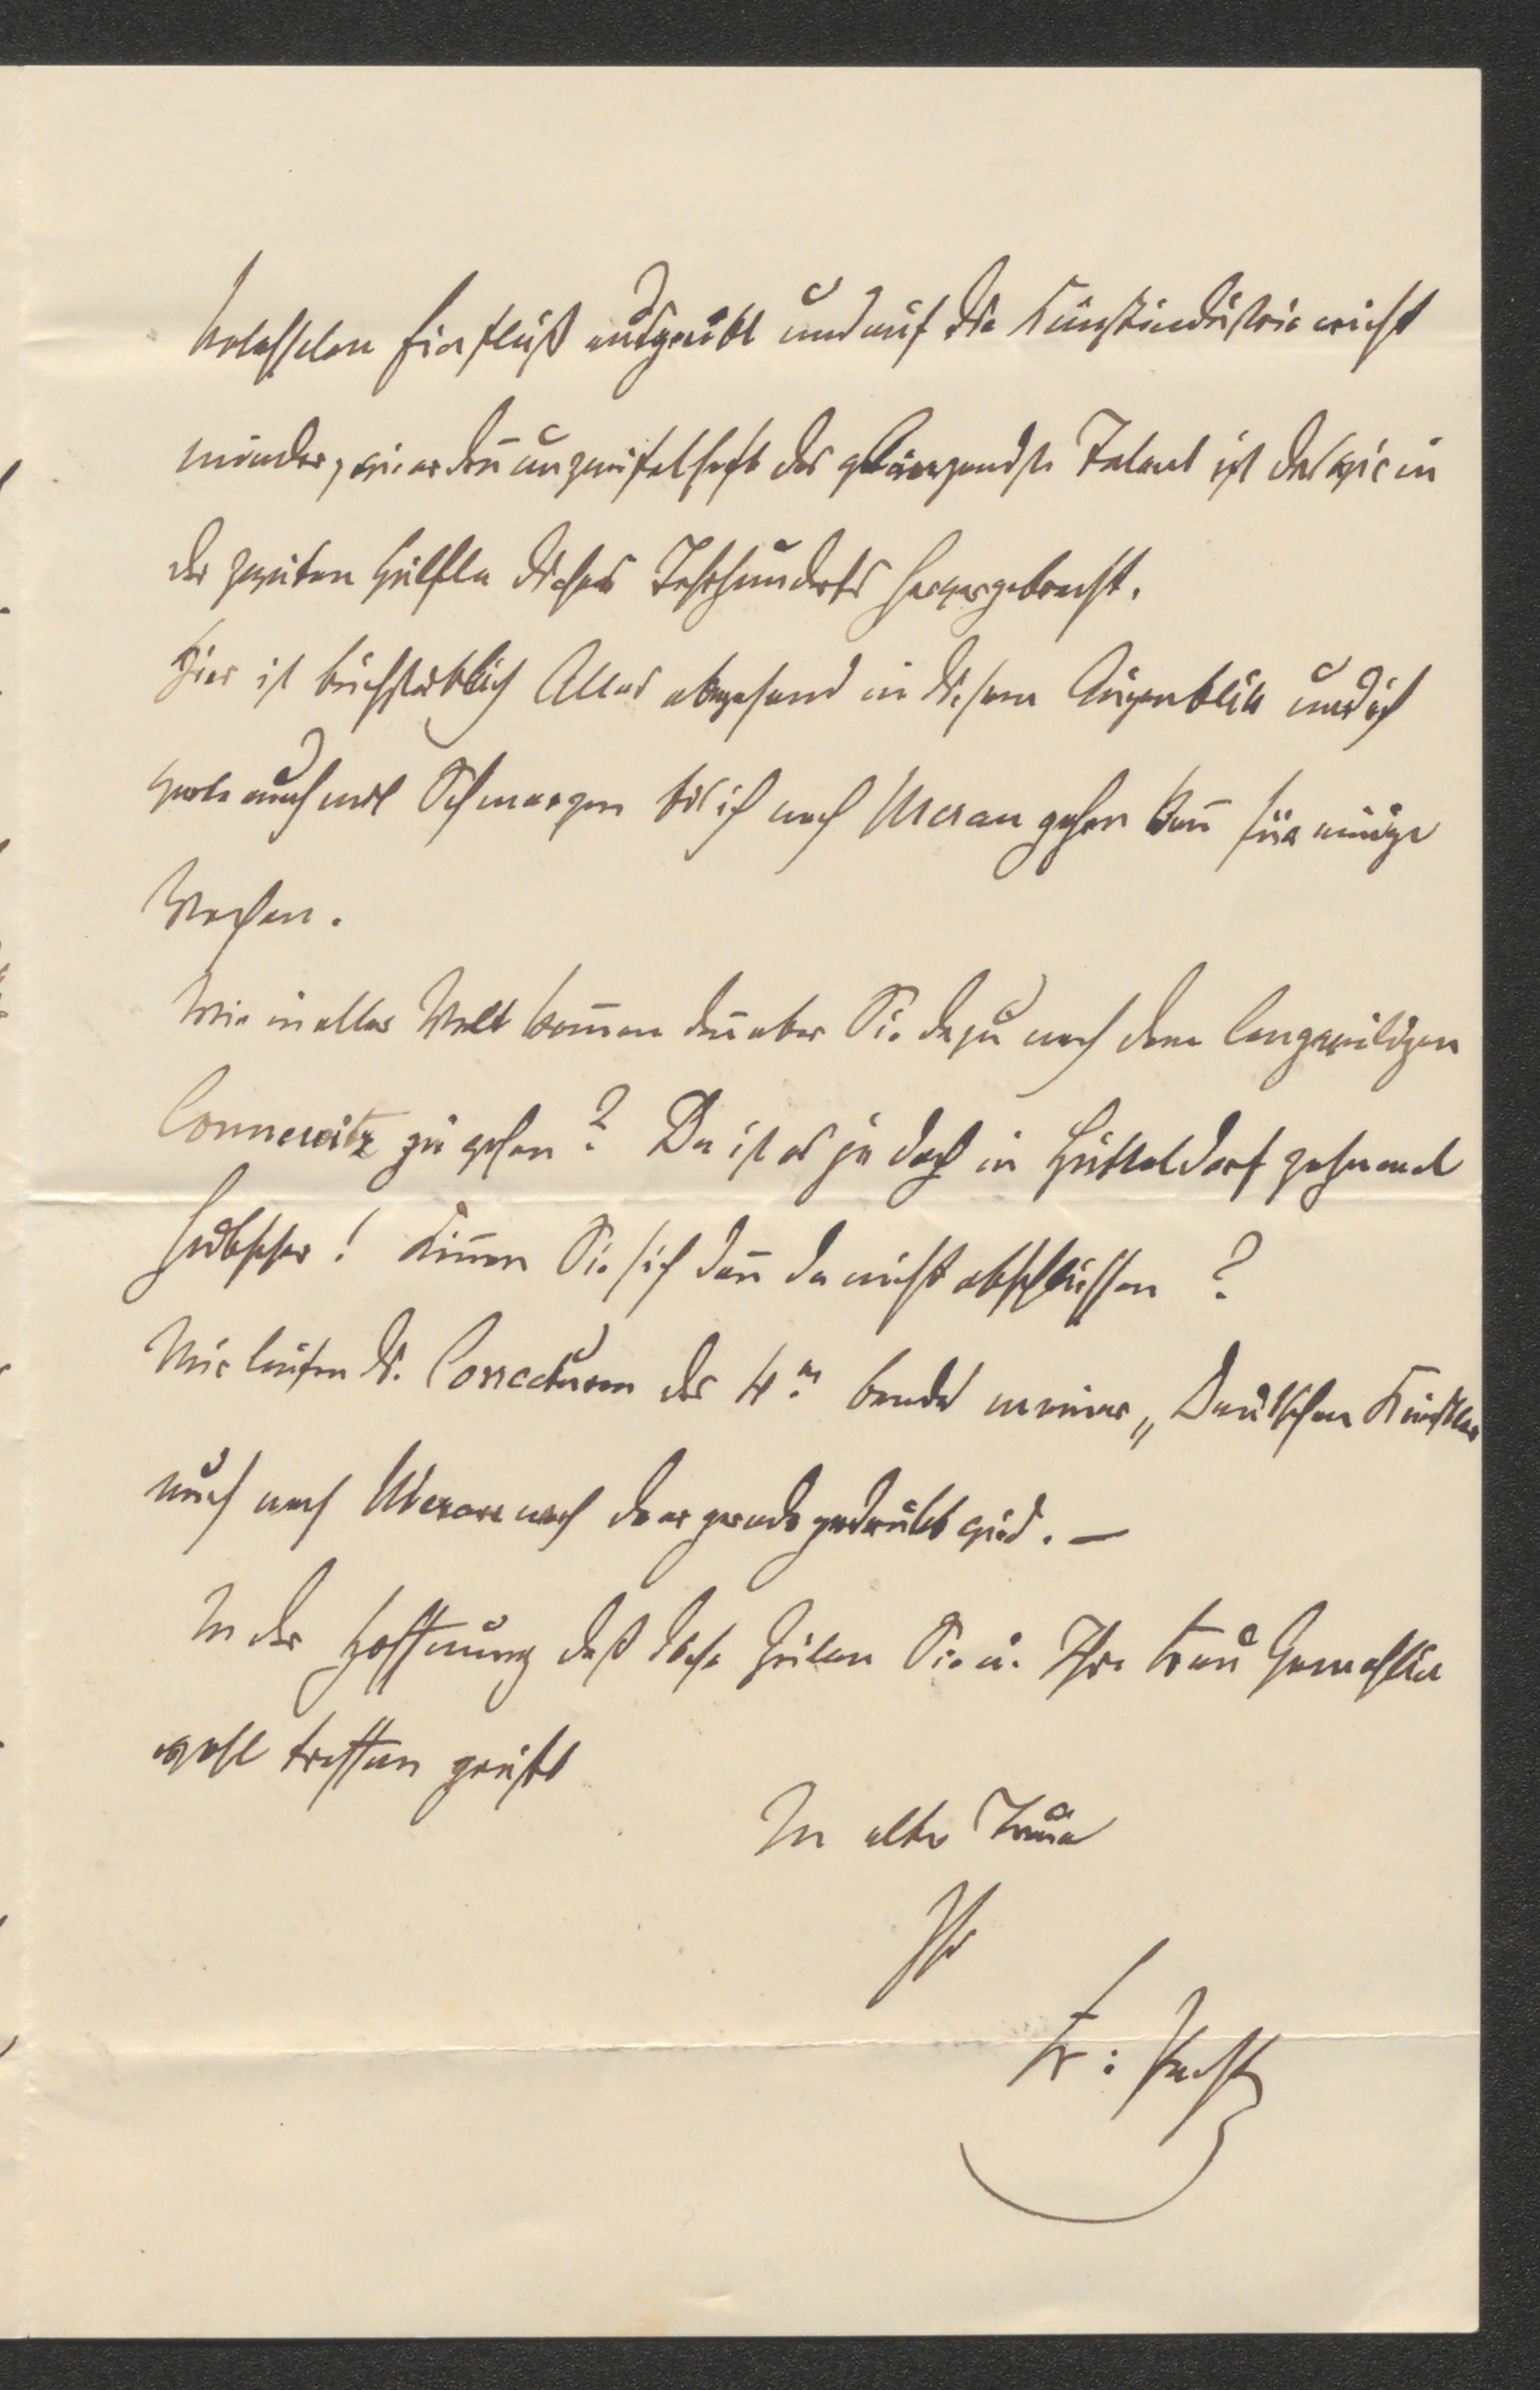 kolossalen Einfluß ausgeübt und auf die Kunstindustrie nicht
minder, wie er den̄ unzweifelhaft das glänzendste Talent ist das wir in
der zweiten Hälfte dieses Jahrhunderts hervorgebracht.
Hier ist buchstäblich Alles abwesend in diesem Augenblick und ich
warte auch mit Schmerzen bis ich nach Meran gehen kan̄ für einige
Wochen.
Wie in aller Welt kom̄en den̄ aber Sie dazu nach dem langweiligen
Connewitz zu gehen? Da ist es ja doch in Hütteldorf
hübscher! Kön̄en Sie sich den̄ da nicht abschließen?
Mir laufen die Correcturen des 4.n Bandes meiner „Deutschen Künstler
auch nach Meran nach da er gerade gedruckt wird. —
In der Hoffnung daß diese Zeilen Sie u. Ihre Frau Gemahlin
wohl treffen grüßt
In alter Treue
Ihr
Fr: Pecht